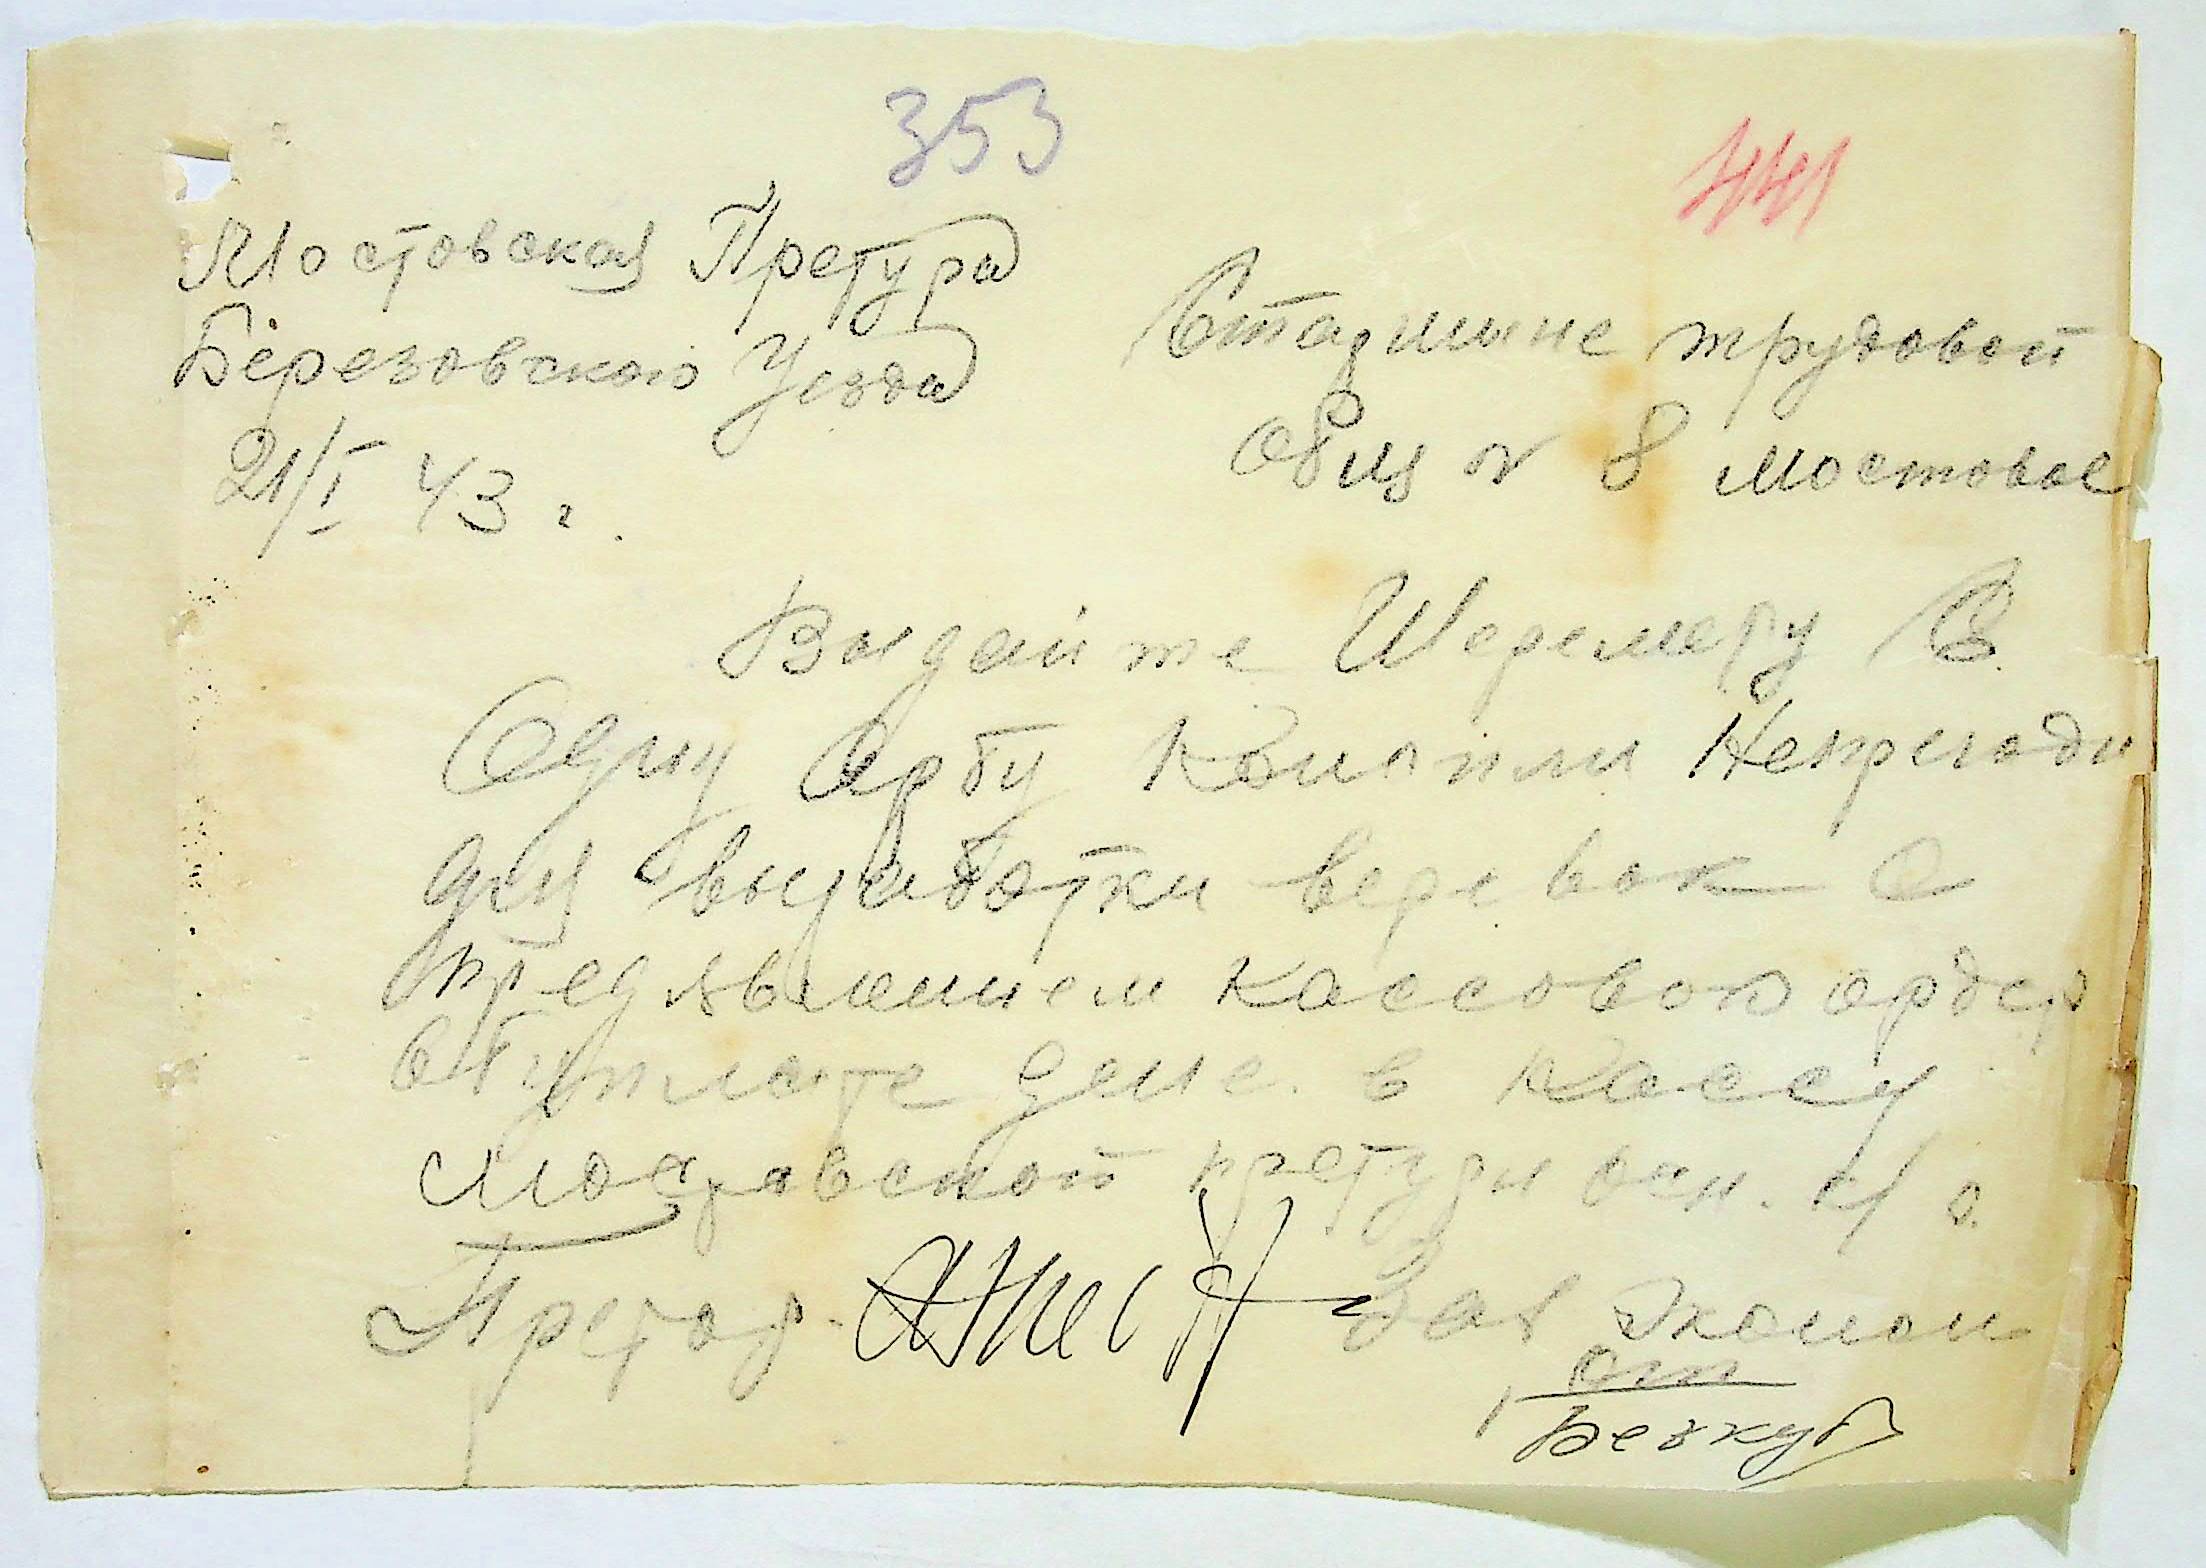 353
441
Мостовская Претура
Березовского Уезда
21/I 43 г.
Старшине трудовой
Общ № 8 Мостовое
Выдайте Шеремету В.
Одну Арбу Конопли Непригодн
для выработки веревок с
предявлением кассового ордер
о уплате дене. в кассу
Мостовской претуры осн. к/о.
Претор. Зав Эконом
отд
Безкуб